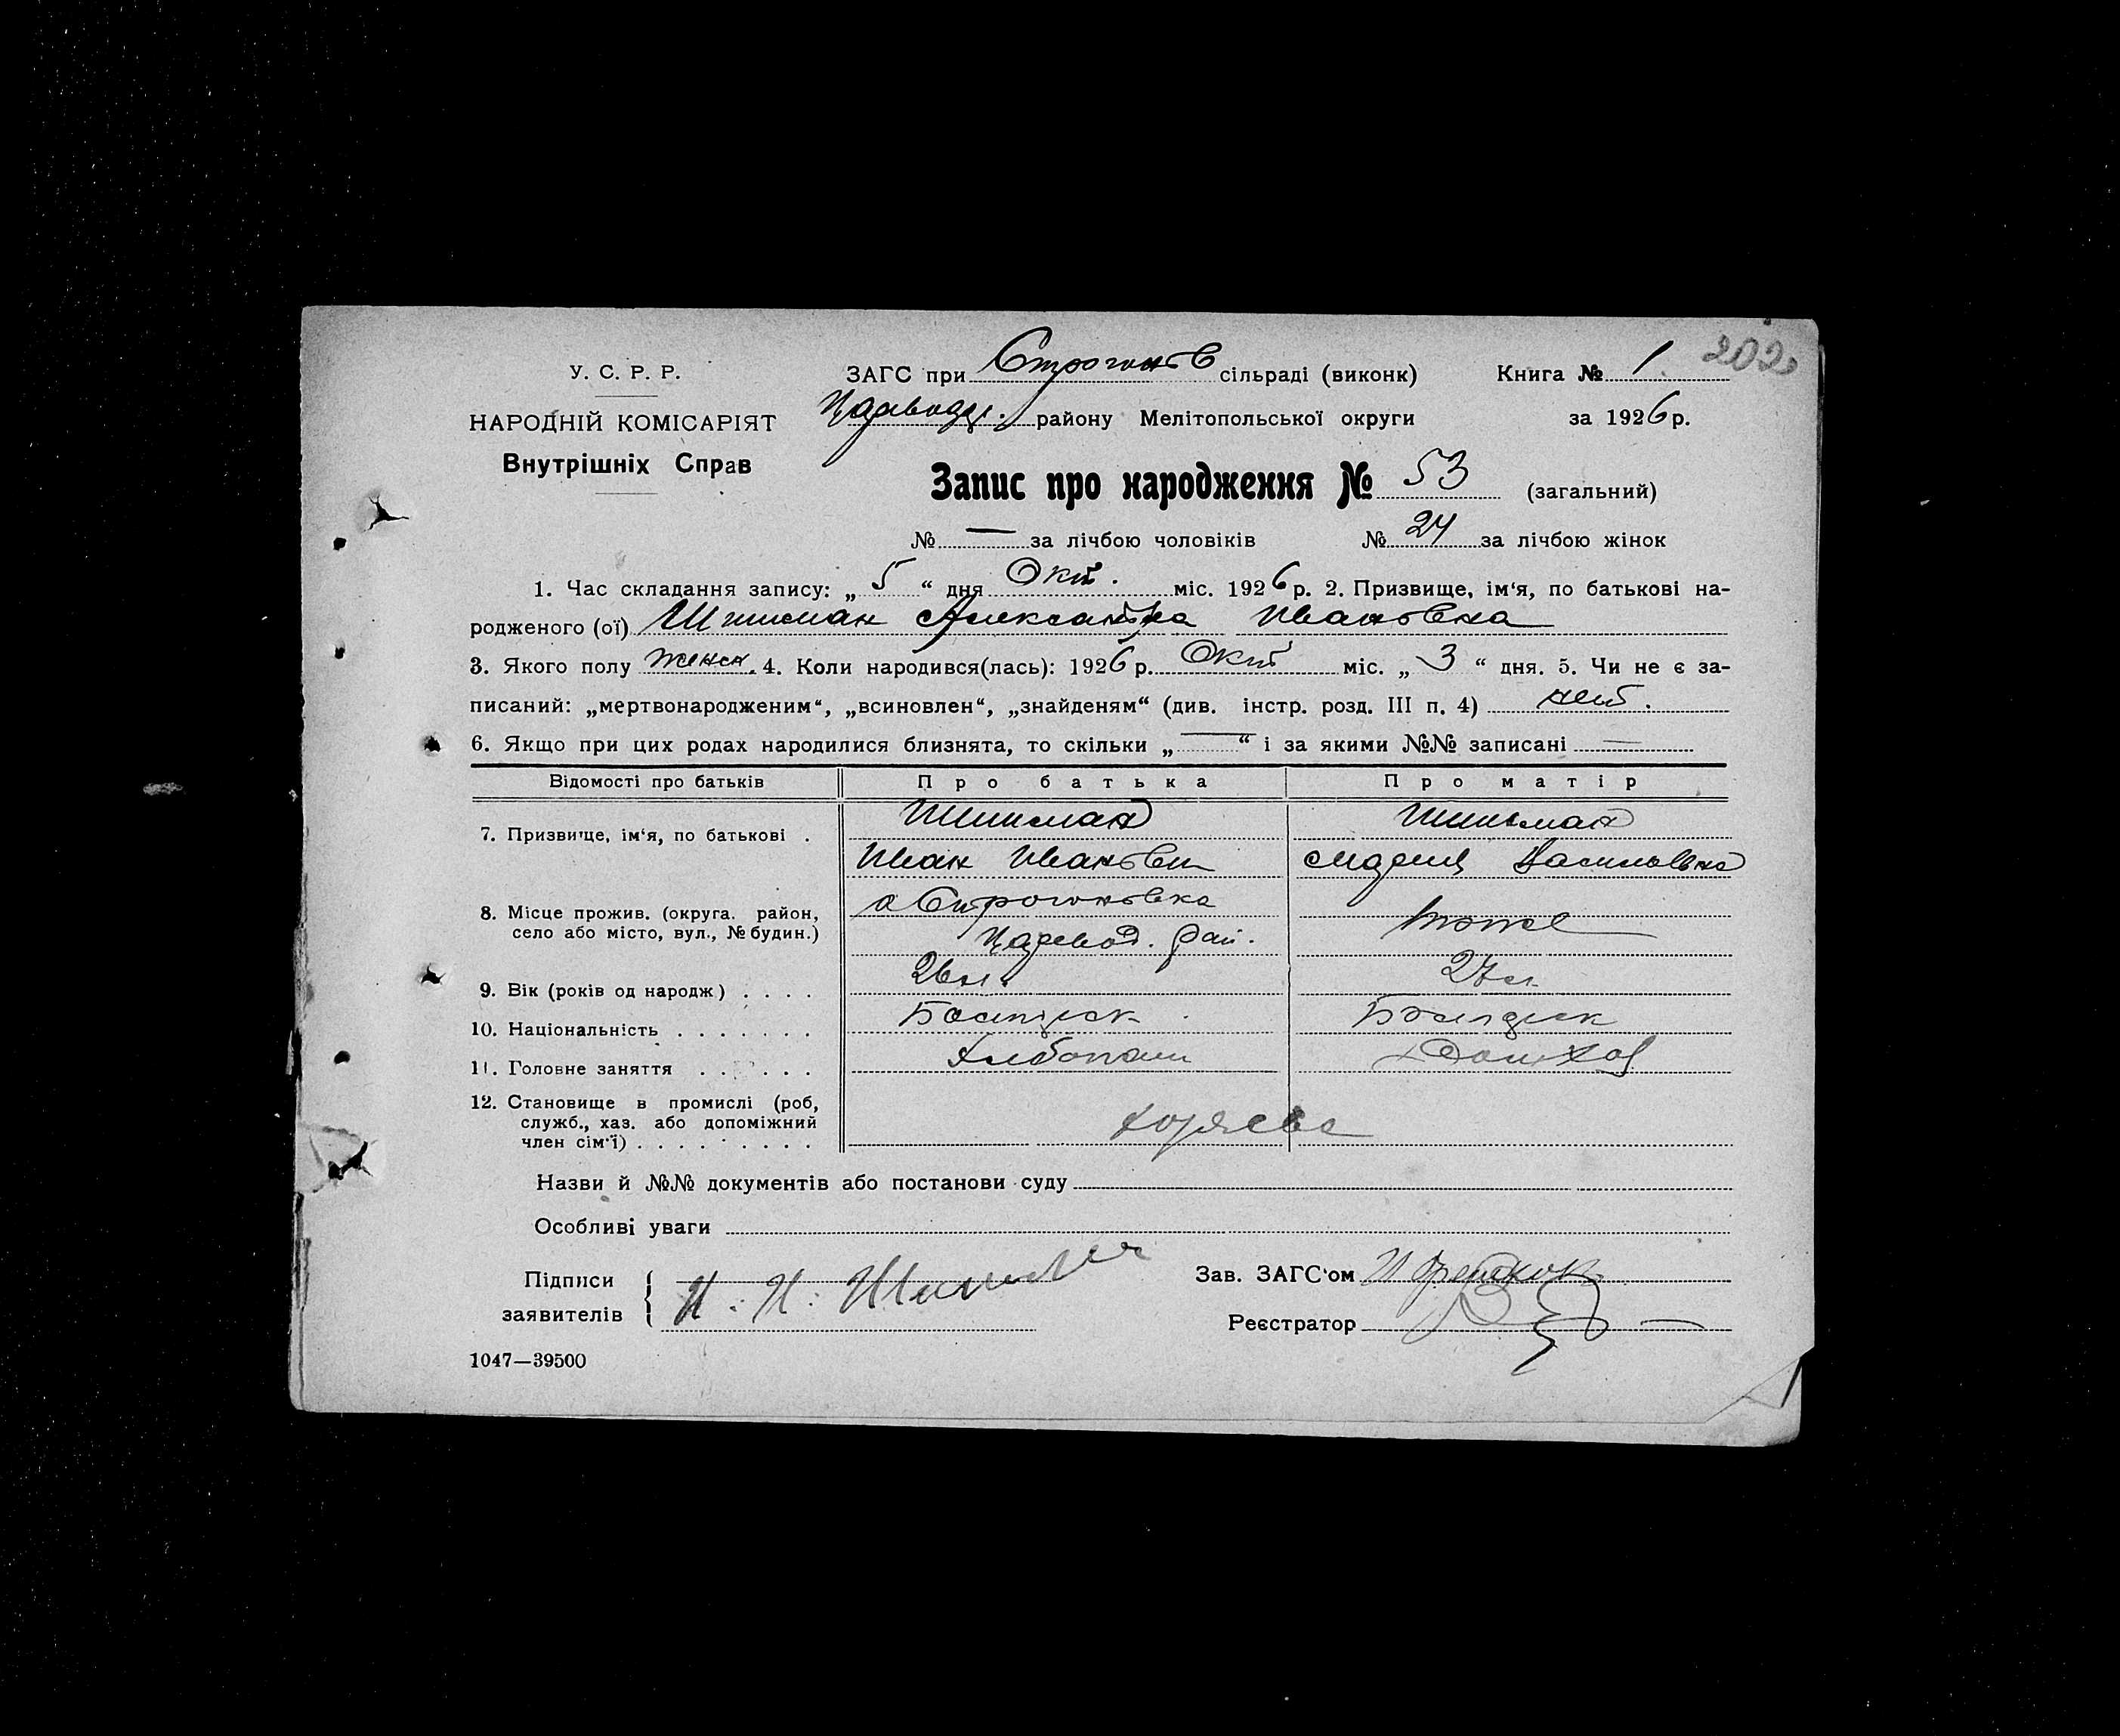 202
У. С. Р. Р.
ЗАГС при Строгонов сільраді (виконк)
Книга № 1.
НАРОДНІЙ КОМІСАРІЯТ
району Мелітопольської округи
за 1926 р.
Внутрішніх Справ
Запис про народження № 53 (загальний)
№ — за лічбою чоловіків № 24 за лічбою жінок
1. Час складання запису: „ 5 “ дня Окт. міс. 1926 р. 2. Призвище, ім‘я, по батькові на-
родженого (ої) Шишман Александра Ивановна
3. Якого полу женск. 4. Коли народився(лась): 1926 р. Окт міс. „ 3 “ дня. 5. Чи не є за-
писаний: „мертвонародженим“, „всиновлен“, „знайденям“ (див. інстр. розд. III п. 4) нет.
6. Якщо при цих родах народилися близнята, то скільки „ — “ і за якими №№ записані —
Відомості про батьків Про батька Про матір
7. Призвище, ім‘я, по батькові . Шишман Шишман
Иван Иванович Мария Васильевна
8. Місце прожив. (округа. район, с Строгоновка тоже
село або місто, вул., № будин.) Царевод. рай.
9. Вік (років од народж) . . . . 26 л. 27 л.
10. Національність . . . . . . .
11. Головне заняття . . . . . . Хлебопаш Домхоз
12. Становище в промислі (роб,
служб., хаз. або допоміжний
член сім‘ї) . . . . . . . . . хозяева
Назви й №№ документів або постанови суду
Особливі уваги
Підписи
заявителів
И. И. Шишман
Зав. ЗАГС‘ом
Реєстратор
1047—39500